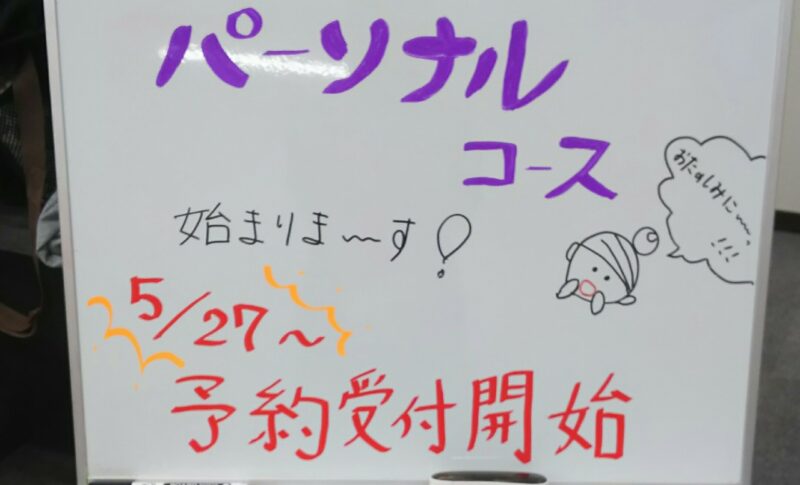 パーソナル
コース
始まりま〜す!
おたのしみに〜。
!!!
5/27〜
予約受付開始